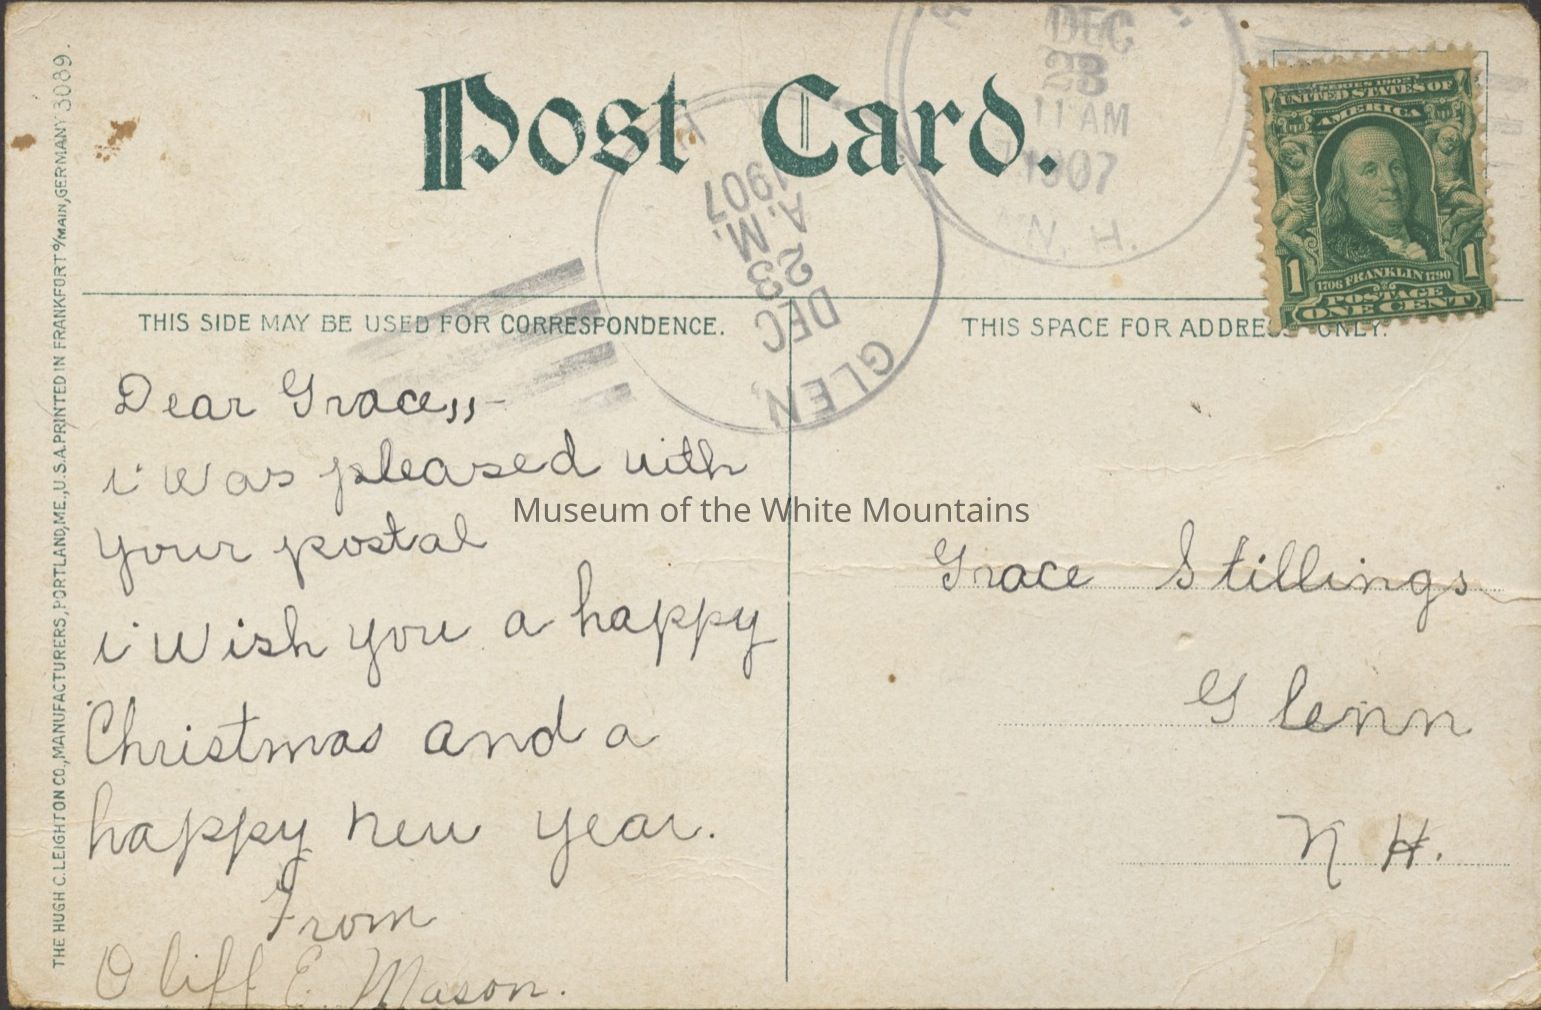 Post Card.
DEC
23
11 AM
1907
N. H.
GLEN,
DEC
23
A. M.
1907
UNITED STATES OF
AMERICA
1706 FRANKLIN 1790
POSTAGE
1 1
ONE CENT
THIS SIDE MAY BE USED FOR CORRESPONDENCE.
THIS SPACE FOR ADDRESS ONLY.
Dear Grace,,-
i was pleased with
your postal
i wish you a happy
Christmas and a
happy new year.
From
Cliff E. Mason.
Grace Stillings
Glenn
N H.
THE HUGH C. LEIGHTON CO., MANUFACTURERS, PORTLAND, ME., U.S.A. PRINTED IN FRANKFORT o/MAIN, GERMANY 3089.
Museum of the White Mountains